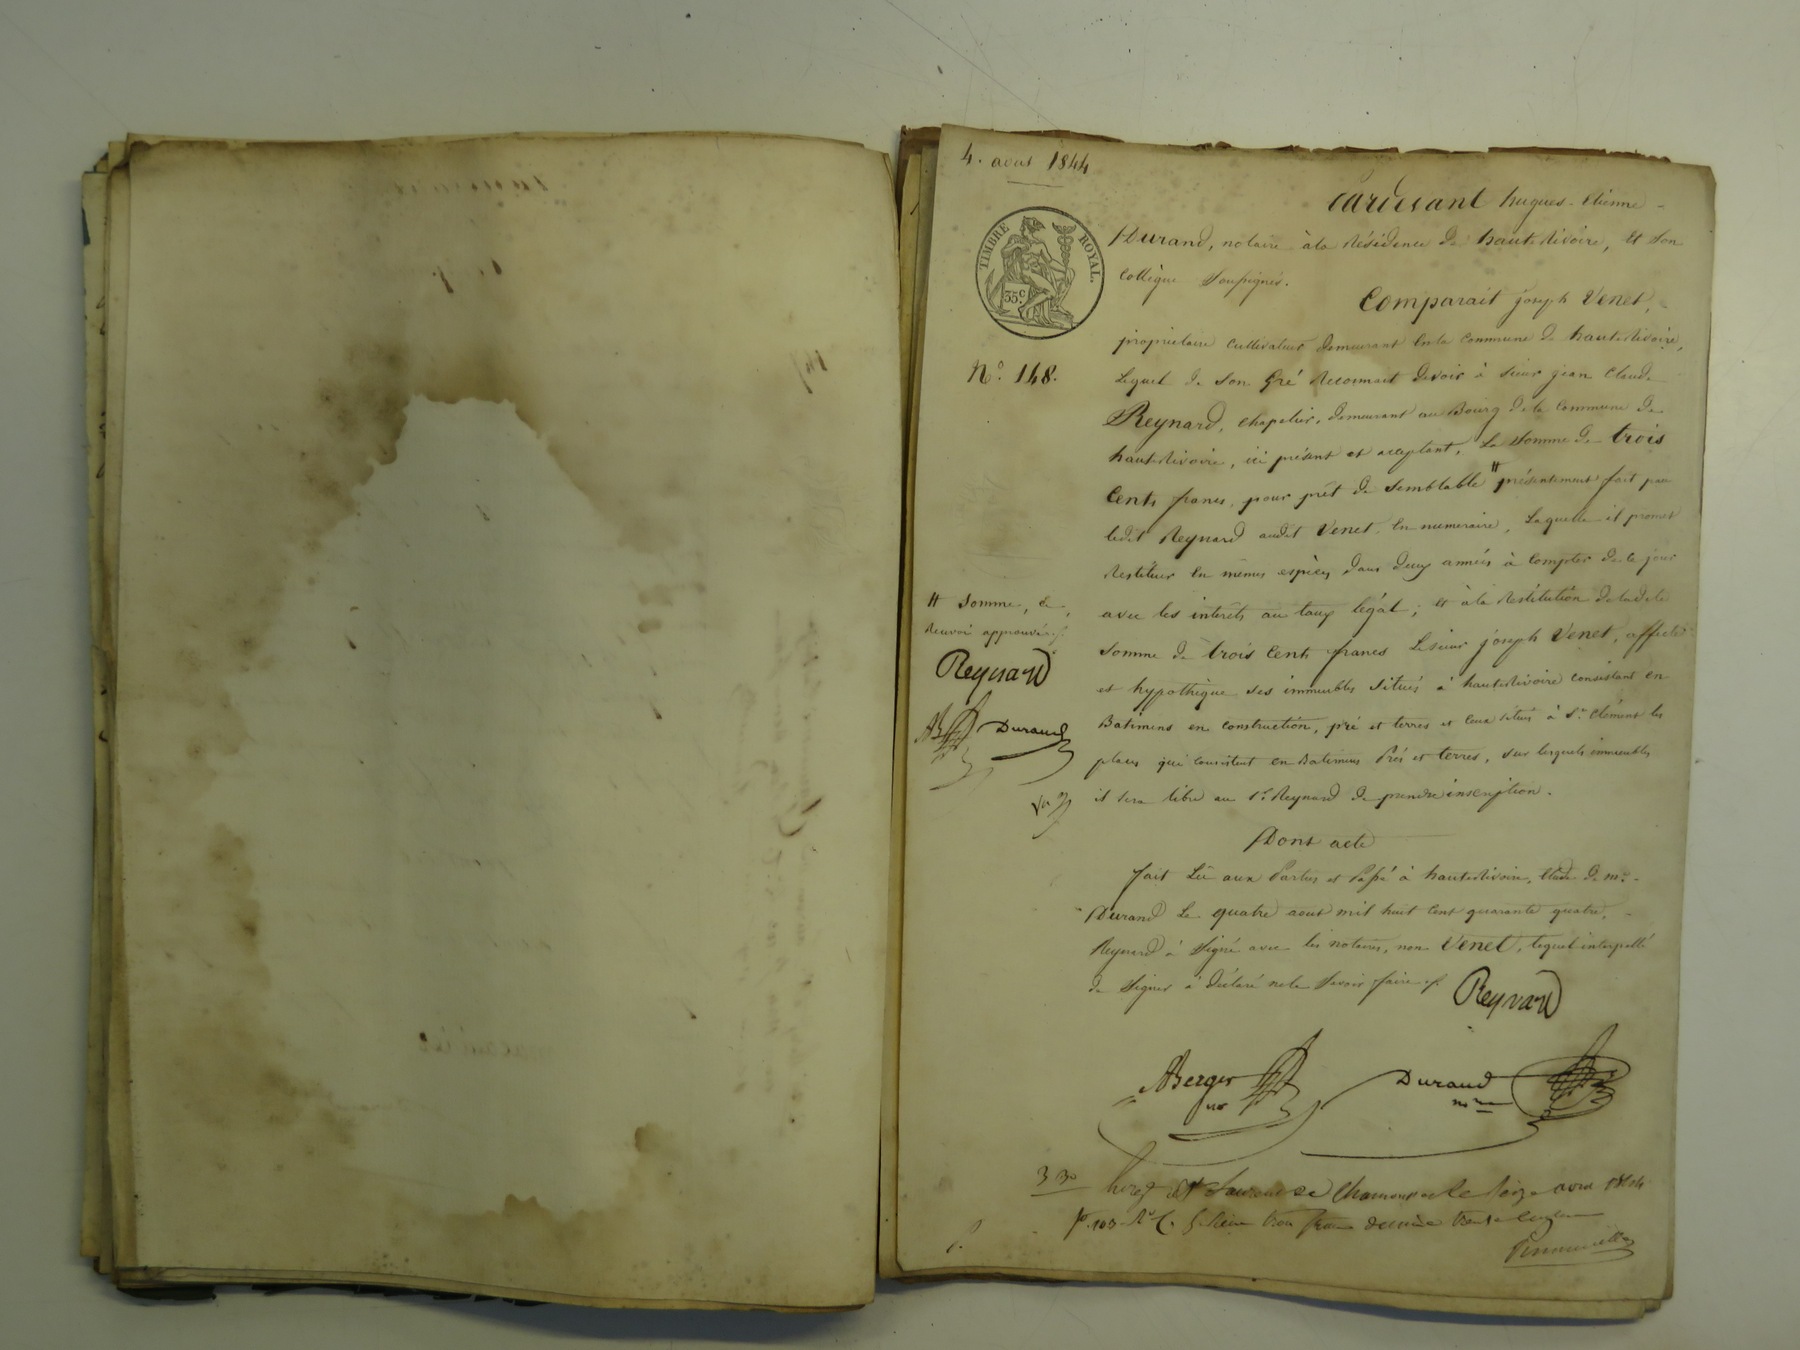 4. aout 1844
Pardevant hugues-Etienne
TIMBRE ROYAL.
35c
Durand, notaire à la Résidence de hauterivoire, et son
Collègue soussignés.
Comparait joseph Venet,
propriétaire Cultivateur demeurant en la Commune de hauterivoire,
N.o 148.
Lequel de son Gré Reconnait devoir à sieur jean Claude
Reynard, chapelier, demeurant au Bourg de la Commune de
hauterivoire, ici présent et acceptant, La somme de trois
Cents francs, pour prêt de semblable # présentement fait par
ledit Reynard audit Venet, en numeraire, Laquelle il promet
Restituer en mêmes espèces, dans deux années à compter de ce jour
avec les interêts au taux légal; et à la Restitution de ladite
somme de trois Cents francs Le sieur joseph Venet, affecte
et hypothèque ses immeubles situés à hauterivoire consistant en
Batimens en construction, pré et terres et ceux situés à St. Clément les
places qui consistent en Batimens Prés et terres, sur lesquels immeubles
il sera libre au sr. Reynard de prendre inscription.
# somme, ce
Renvoi approuvé
Reynard
AB Durand
Dont acte
fait Lû aux Parties et Passé à hauterivoire, Etude de me.
Durand Le quatre aout mil huit cent quarante quatre,
Reynard à Signé avec les notaires, non Venet, lequel interpellé
de Signer a déclaré ne le Savoir faire.
Reynard
ABerger
Durand
nore
3 30
Enreg à St Laurent de Chamousset le seize aout 1844
fo. 103 Ro C. 5 Reçu trois francs decime trente centimes